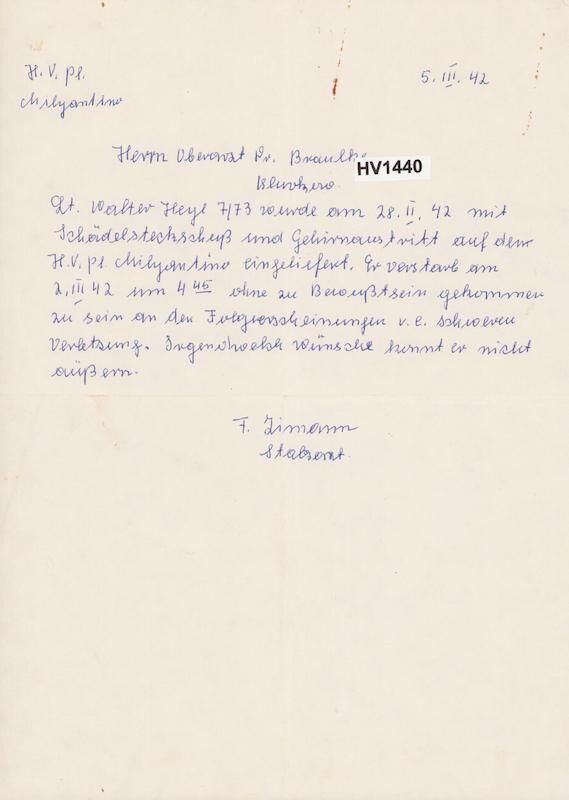 H. V. Pl. 5. III. 42
Milyantino
Herrn Oberarzt Dr. Braulke
HV1440
Lt. Walter Heyl 7/73 wurde am 28. II. 42 mit
Schädelsteckschuß und Gehirnaustritt auf dem
H. V. Pl. Milyantino eingeliefert. Er verstarb am
2. III 42 um 4 45 ohne zu Bewußtsein gekommen
zu sein an den Folgeerscheinungen s. e. schweren
Verletzung. Irgendwelche Wünsche konnt er nicht
äußern.
F. Zimann
Stabsarzt.